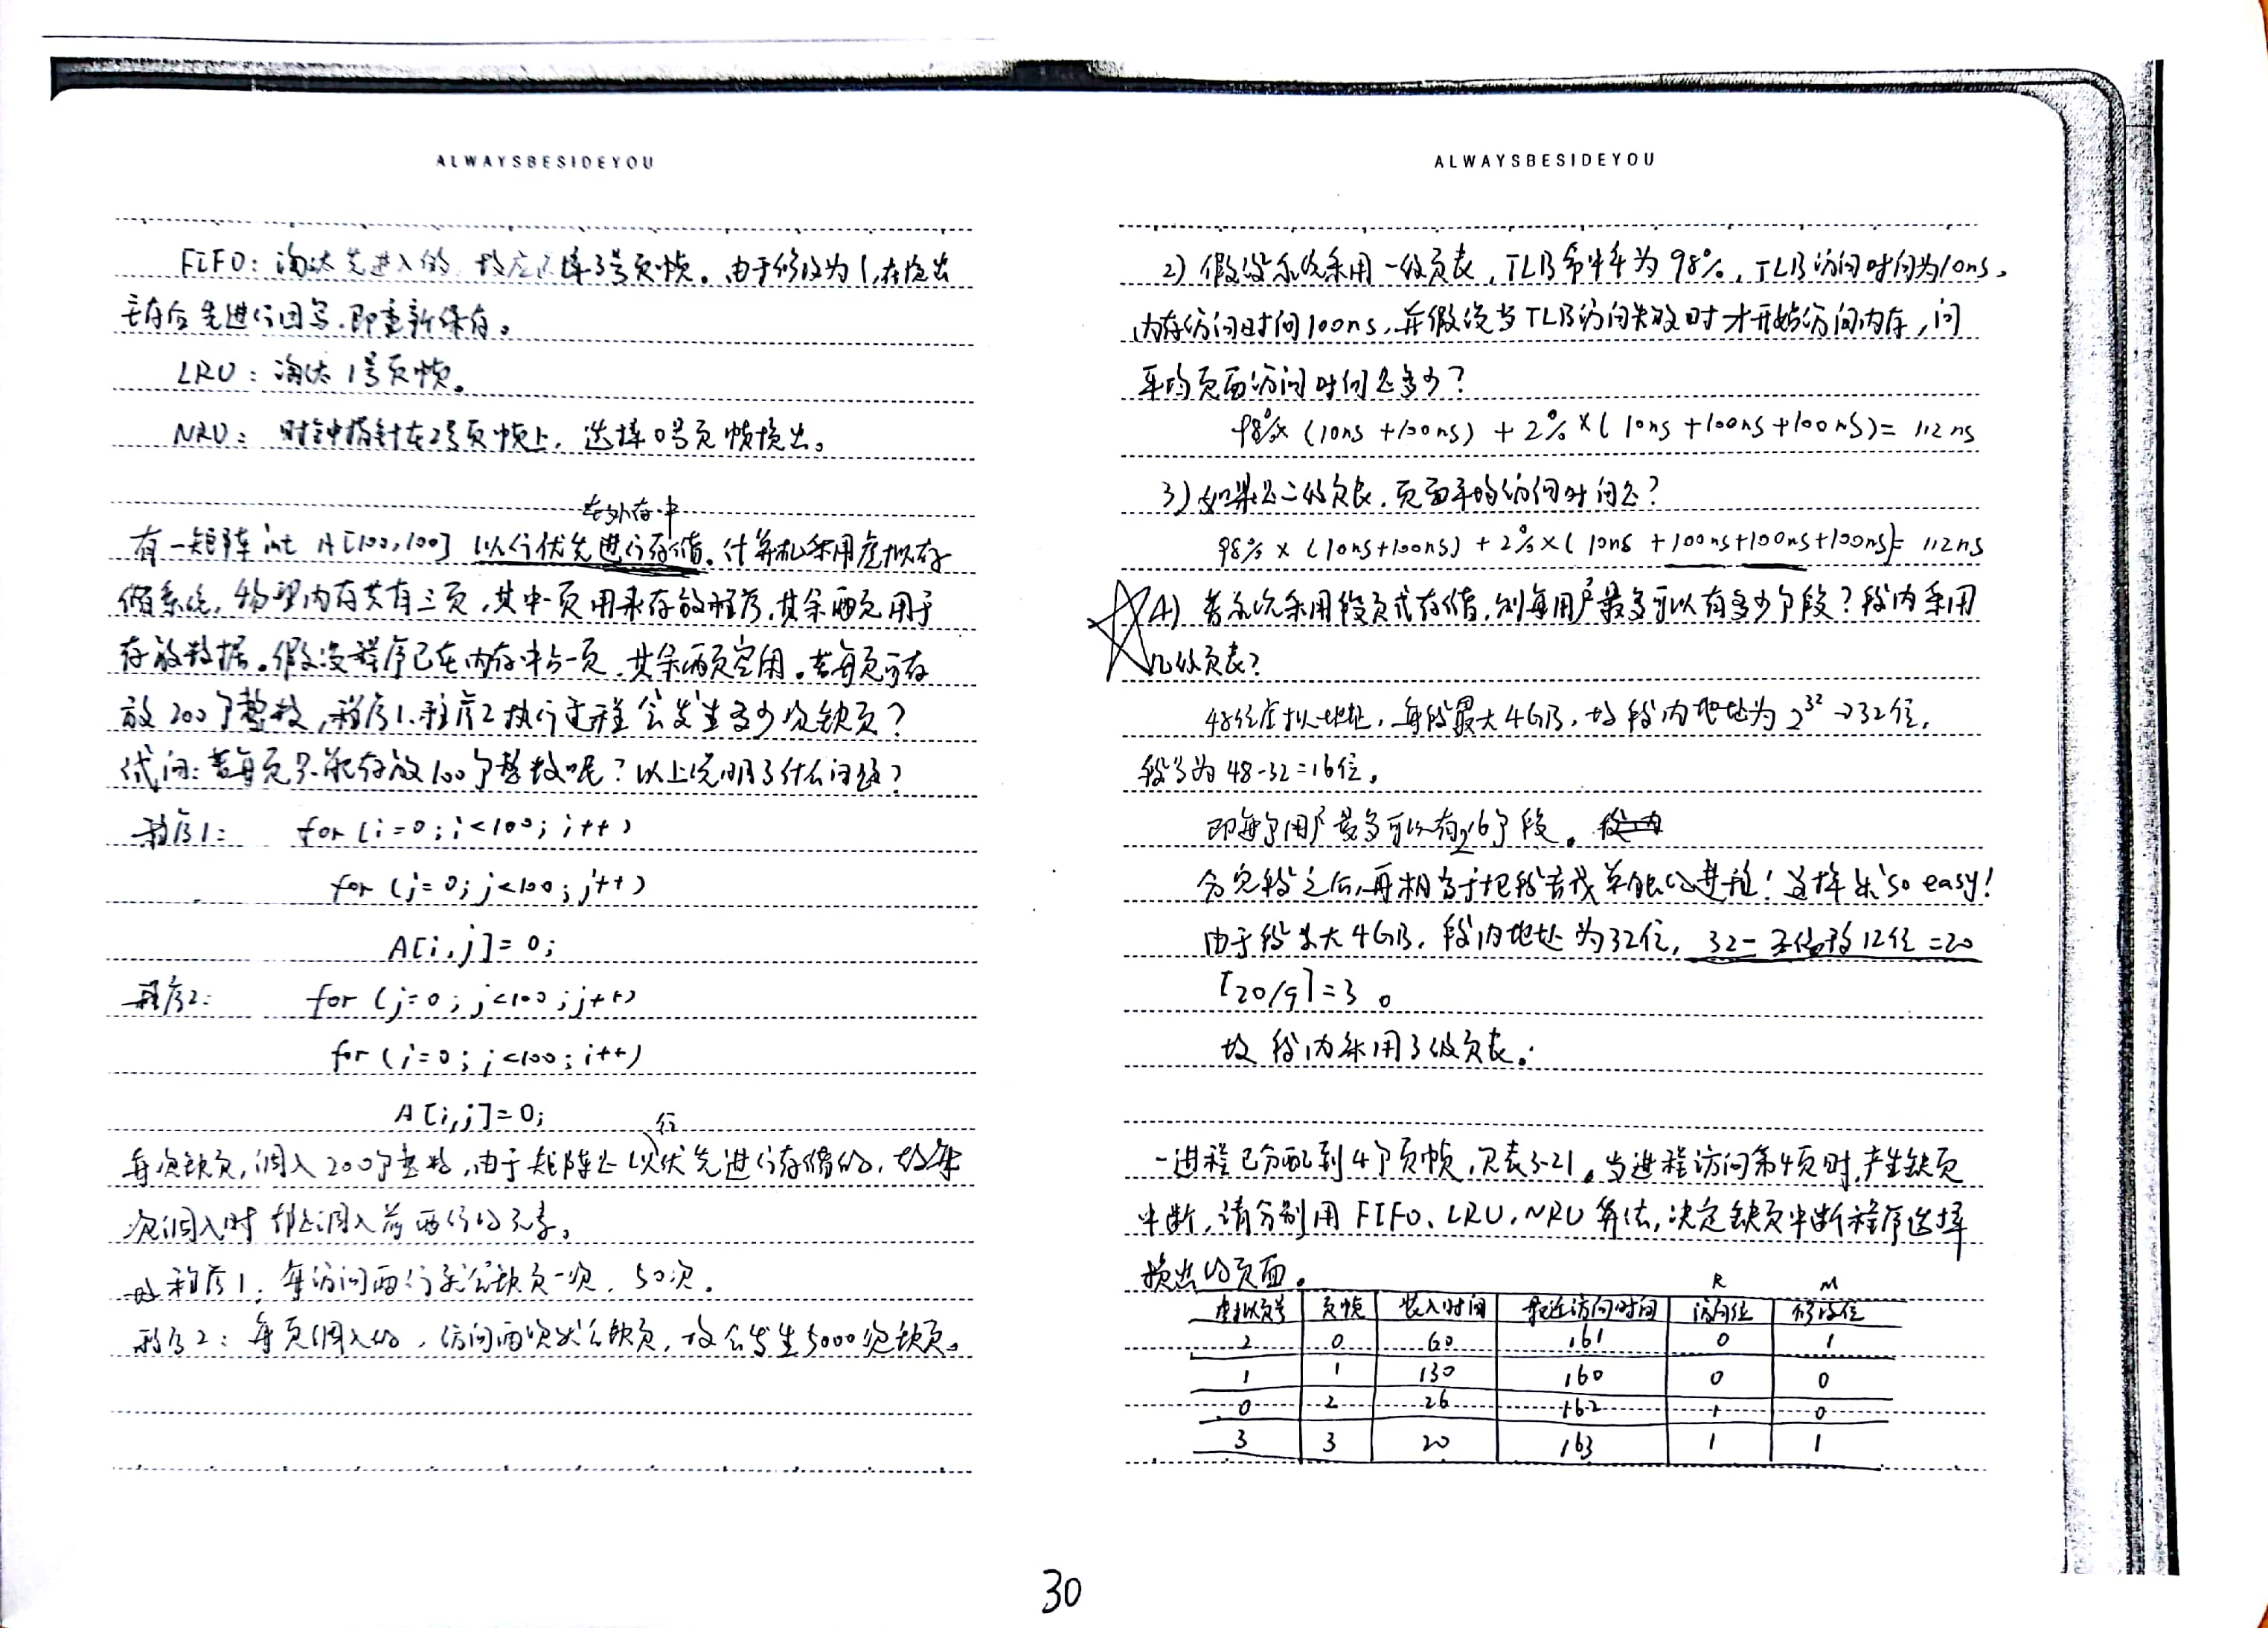 ALWAYSBESIDEYOU
FIFO：淘汰先进入的，故应选择3号页帧。由于修改为1，在换出
主存后先进行回写，即重新保存。
LRU：淘汰1号页帧。
NRU：时钟指针在2号页帧上，选择0号页帧换出。
在外存中
有一矩阵 int A[100,100] 以行优先进行存储。计算机采用虚拟存
储系统，物理内存共有三页，其中一页用来存放程序，其余两页用于
存放数据。假设程序已在内存中占一页，其余两页空闲。若每页可存
放200个整数，程序1、程序2执行过程会发生多少次缺页？
试问：若每页只能存放100个整数呢？以上说明了什么问题？
程序1： for (i=0; i<100; i++)
for (j=0; j<100; j++)
A[i,j]=0;
程序2： for (j=0; j<100; j++)
for (i=0; i<100; i++)
A[i,j]=0;
行
每次缺页，调入200个整数，由于矩阵是以优先进行存储的，故每
次调入时都是调入前两行的元素。
故程序1：每访问两行就会缺页一次，50次。
程序2：每页调入的，访问两次就会缺页，故会发生5000次缺页。
ALWAYSBESIDEYOU
2) 假设系统采用一级页表，TLB命中率为98%，TLB访问时间为10ns，
内存访问时间100ns，并假设当TLB访问失败时才开始访问内存，问
平均页面访问时间是多少？
98%×(10ns+100ns)+2%×(10ns+100ns+100ns)=112ns
3) 如果是二级页表，页面平均访问时间是？
98%×(10ns+100ns)+2%×(10ns+100ns+100ns+100ns)=112ns
4) 若系统采用段页式存储，则每用户最多可以有多少个段？段内采用
几级页表？
48位虚拟地址，每段最大4GB，故段内地址为2^32→32位，
段号为48-32=16位。
即每个用户最多可以有2^16个段。
分完段之后，再相当于把段看成单独的进程！这样来so easy！
由于段最大4GB，段内地址为32位，32-页偏移12位=20
⌈20/9⌉=3。
故段内采用3级页表。
一进程已分配到4个页帧，见表3-21。当进程访问第4页时，产生缺页
中断，请分别用FIFO、LRU、NRU算法，决定缺页中断程序选择
换出的页面。
R M
虚拟页号 页帧 装入时间 最近访问时间 访问位 修改位
2 0 60 161 0 1
1 1 130 160 0 0
0 2 26 162 1 0
3 3 20 163 1 1
30